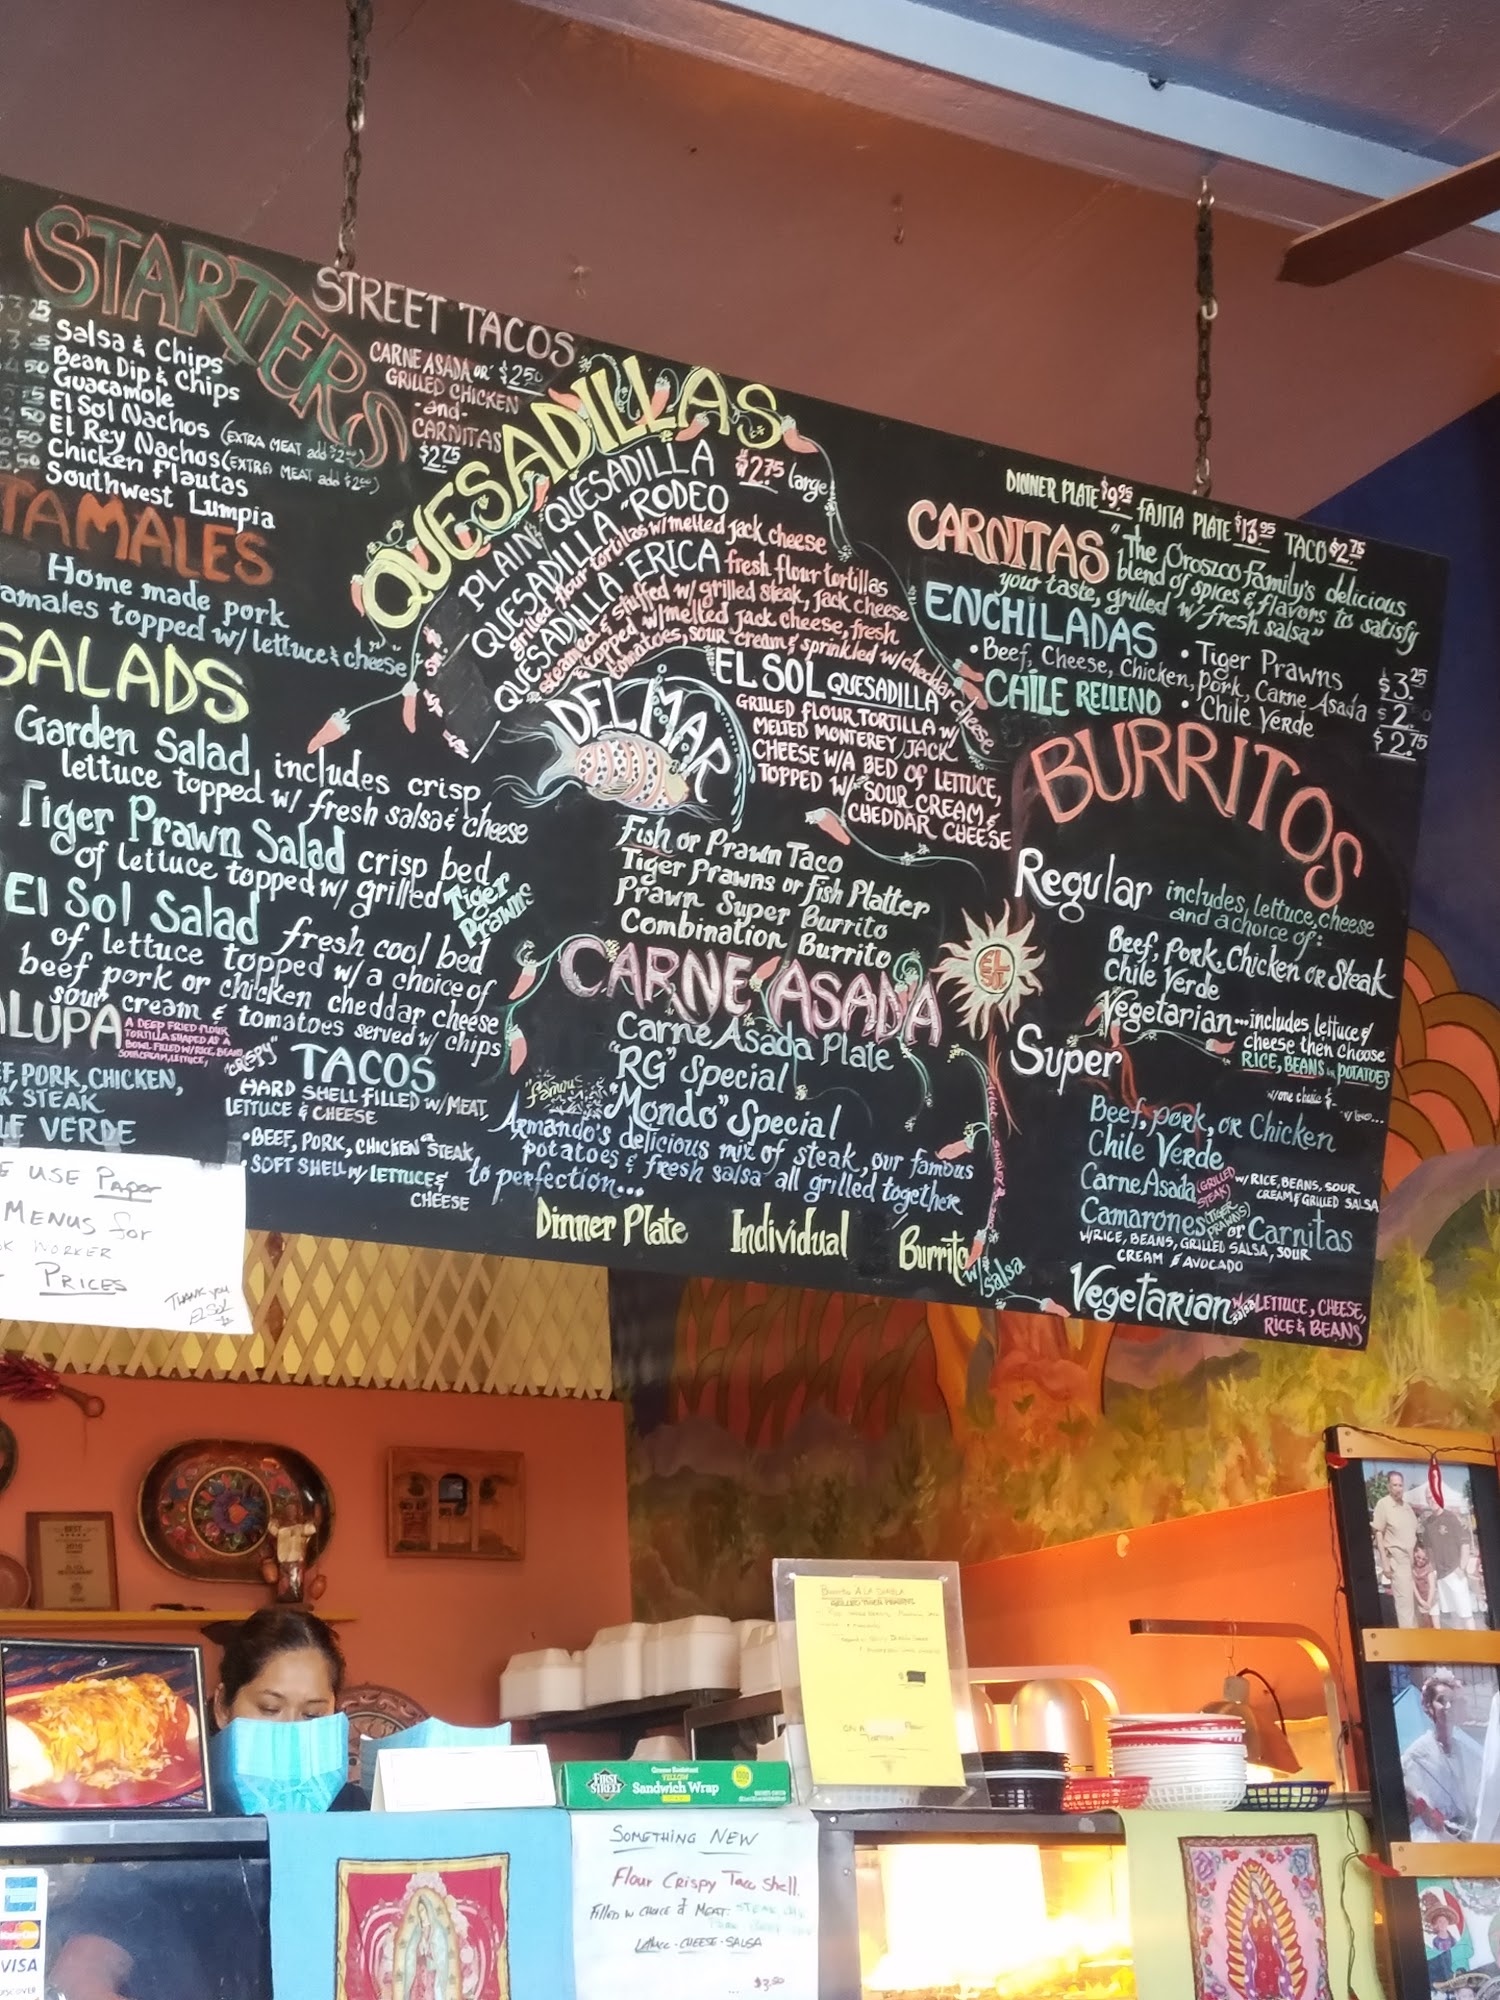 STARTERS
Salsa & Chips
Bean Dip & Chips
Guacamole
El Sol Nachos (EXTRA MEAT add $2.00)
El Rey Nachos (EXTRA MEAT add $2.00)
Chicken Flautas
Southwest Lumpia
TAMALES
Home made pork
tamales topped w/ lettuce & cheese
SALADS
Garden Salad includes crisp
lettuce topped w/ fresh salsa & cheese
Tiger Prawn Salad crisp bed
of lettuce topped w/ grilled Tiger Prawns
El Sol Salad fresh cool bed
of lettuce topped w/ a choice of
beef pork or chicken cheddar cheese
sour cream & tomatoes served w/ chips
ALUPA A DEEP FRIED FLOUR
TORTILLA SHAPED AS A
BOWL FILLED W/RICE, BEANS
SOUR CREAM, LETTUCE,
EF, PORK, CHICKEN,
K STEAK
LE VERDE
STREET TACOS
CARNE ASADA OR $2.50
GRILLED CHICKEN
-and-
CARNITAS
$2.75
QUESADILLAS
PLAIN QUESADILLA $2.75 large
QUESADILLA "RODEO
grilled flour tortillas w/ melted jack cheese
QUESADILLA "ERICA fresh flour tortillas
steamed & stuffed w/ grilled steak, jack cheese
& topped w/ melted jack cheese, fresh
tomatoes, sour cream & sprinkled w/ cheddar cheese
EL SOL QUESADILLA
GRILLED FLOUR TORTILLA W/
MELTED MONTEREY JACK
CHEESE W/A BED OF LETTUCE,
TOPPED W/ SOUR CREAM &
CHEDDAR CHEESE
DEL MAR
Fish or Prawn Taco
Tiger Prawns or Fish Platter
Prawn Super Burrito
Combination Burrito
"CRISPY" TACOS
HARD SHELL FILLED W/MEAT,
LETTUCE & CHEESE
•BEEF, PORK, CHICKEN or STEAK
•SOFT SHELL w/ LETTUCE &
CHEESE
CARNE ASADA
Carne Asada Plate
"RG" Special
"famous "Mondo" Special
Armando's delicious mix of steak, our famous
potatoes & fresh salsa all grilled together
to perfection...
Dinner Plate Individual Burrito w/ Salsa
EL SOL
DINNER PLATE $9.95 FAJITA PLATE $13.95 TACO $2.75
CARNITAS "The Oroszco Family's delicious
blend of spices & flavors to satisfy
your taste, grilled w/ fresh salsa"
ENCHILADAS
•Beef, Cheese, Chicken, Pork, Carne Asada
•Tiger Prawns $3.25
CHILE RELLENO •Chile Verde $2.75
BURRITOS
Regular includes, lettuce, cheese
and a choice of:
Beef, Pork, Chicken or Steak
Chile Verde
Vegetarian...includes lettuce &
cheese then choose
RICE, BEANS or POTATOES
Super w/one choice &
Beef, pork, or Chicken
Chile Verde
Carne Asada (GRILLED STEAK) w/ RICE, BEANS, SOUR
CREAM & GRILLED SALSA
Camarones (TIGER PRAWNS) or Carnitas
W/RICE, BEANS, GRILLED SALSA, SOUR
CREAM & AVOCADO
Vegetarian w/ salsa LETTUCE, CHEESE,
RICE & BEANS
E USE Paper
MENUS for
WORKER
PRICES
THANK YOU
El Sol
BEST
2010
BURRITO A LA DIABLA
GRILLED TIGER PRAWNS
ON A
TORTILLA
FIRST STREET
Grease Resistant
YELLOW
Sandwich Wrap
SOMETHING NEW
Flour Crispy Taco Shell.
Filled w CHOICE of MEAT:
Lettuce - CHEESE - SALSA
$3.50
MasterCard
VISA
DISCOVER